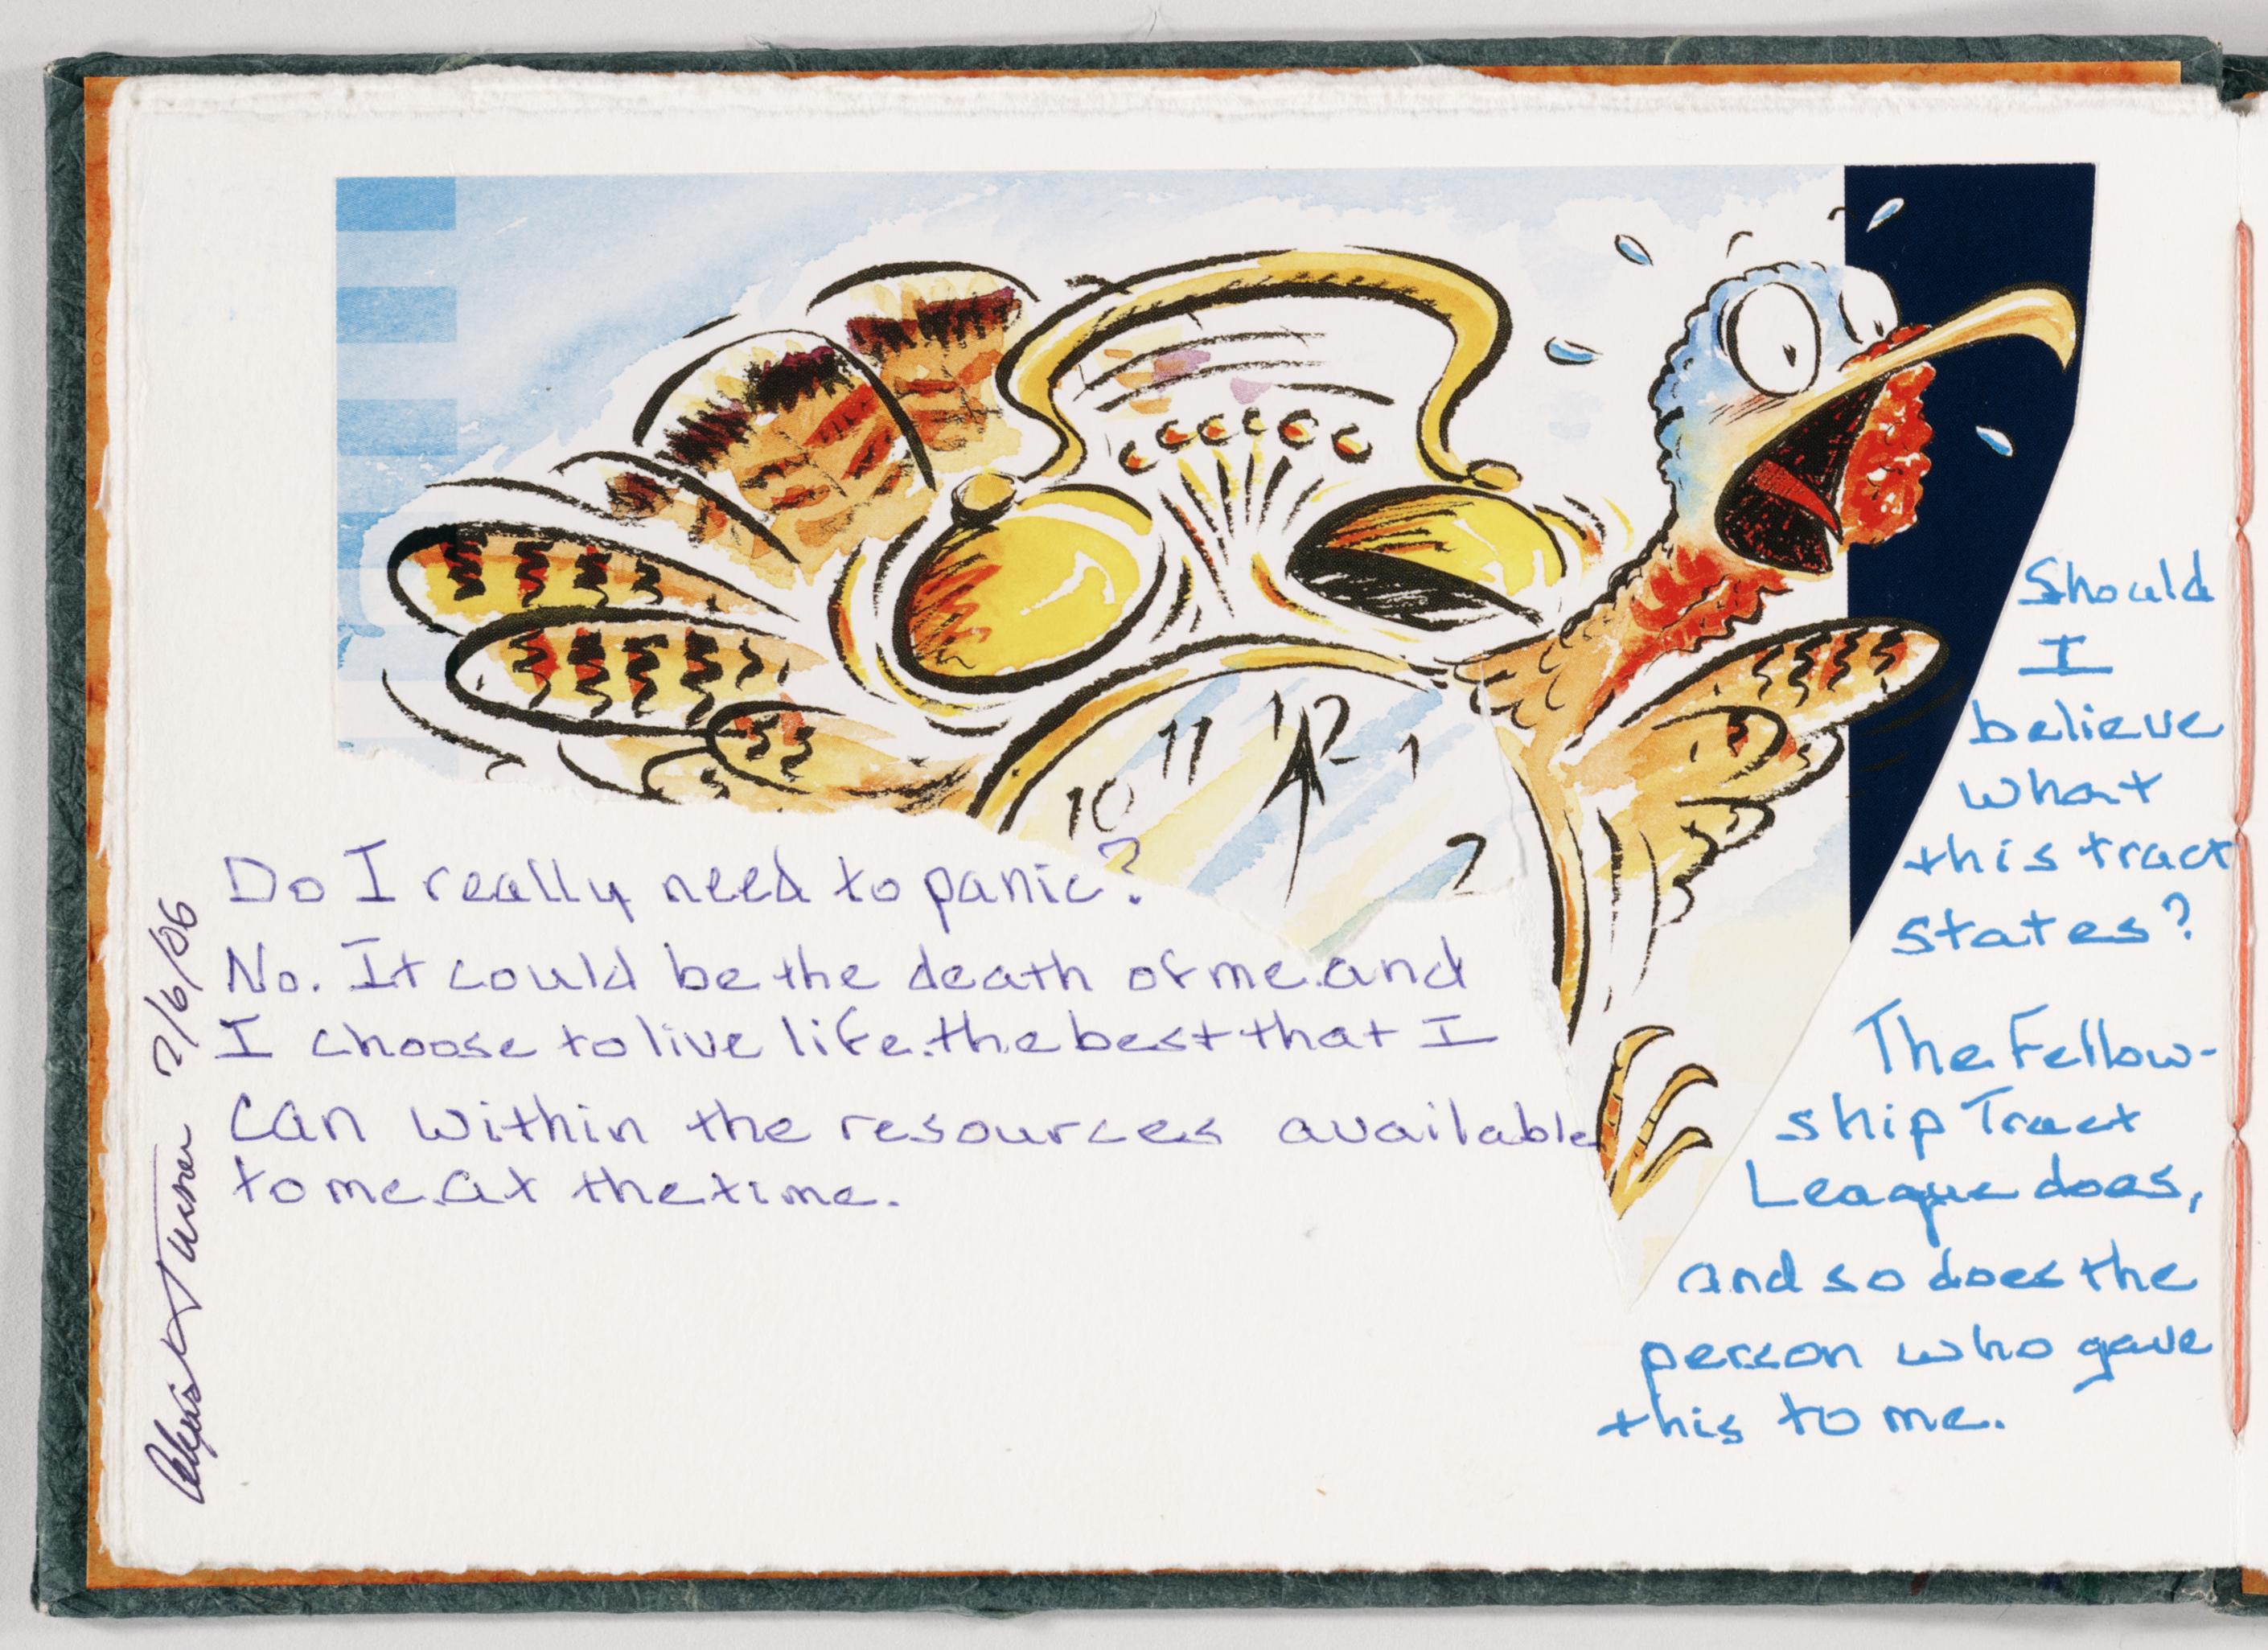 10 11 12 1
2
Do I really need to panic?
No. It could be the death of me and
I choose to live life the best that I
can within the resources available
to me at the time.
Should
I
believe
what
this tract
states?
The Fellow-
ship Tract
League does,
and so does the
person who gave
this to me.
Turner 2/6/06